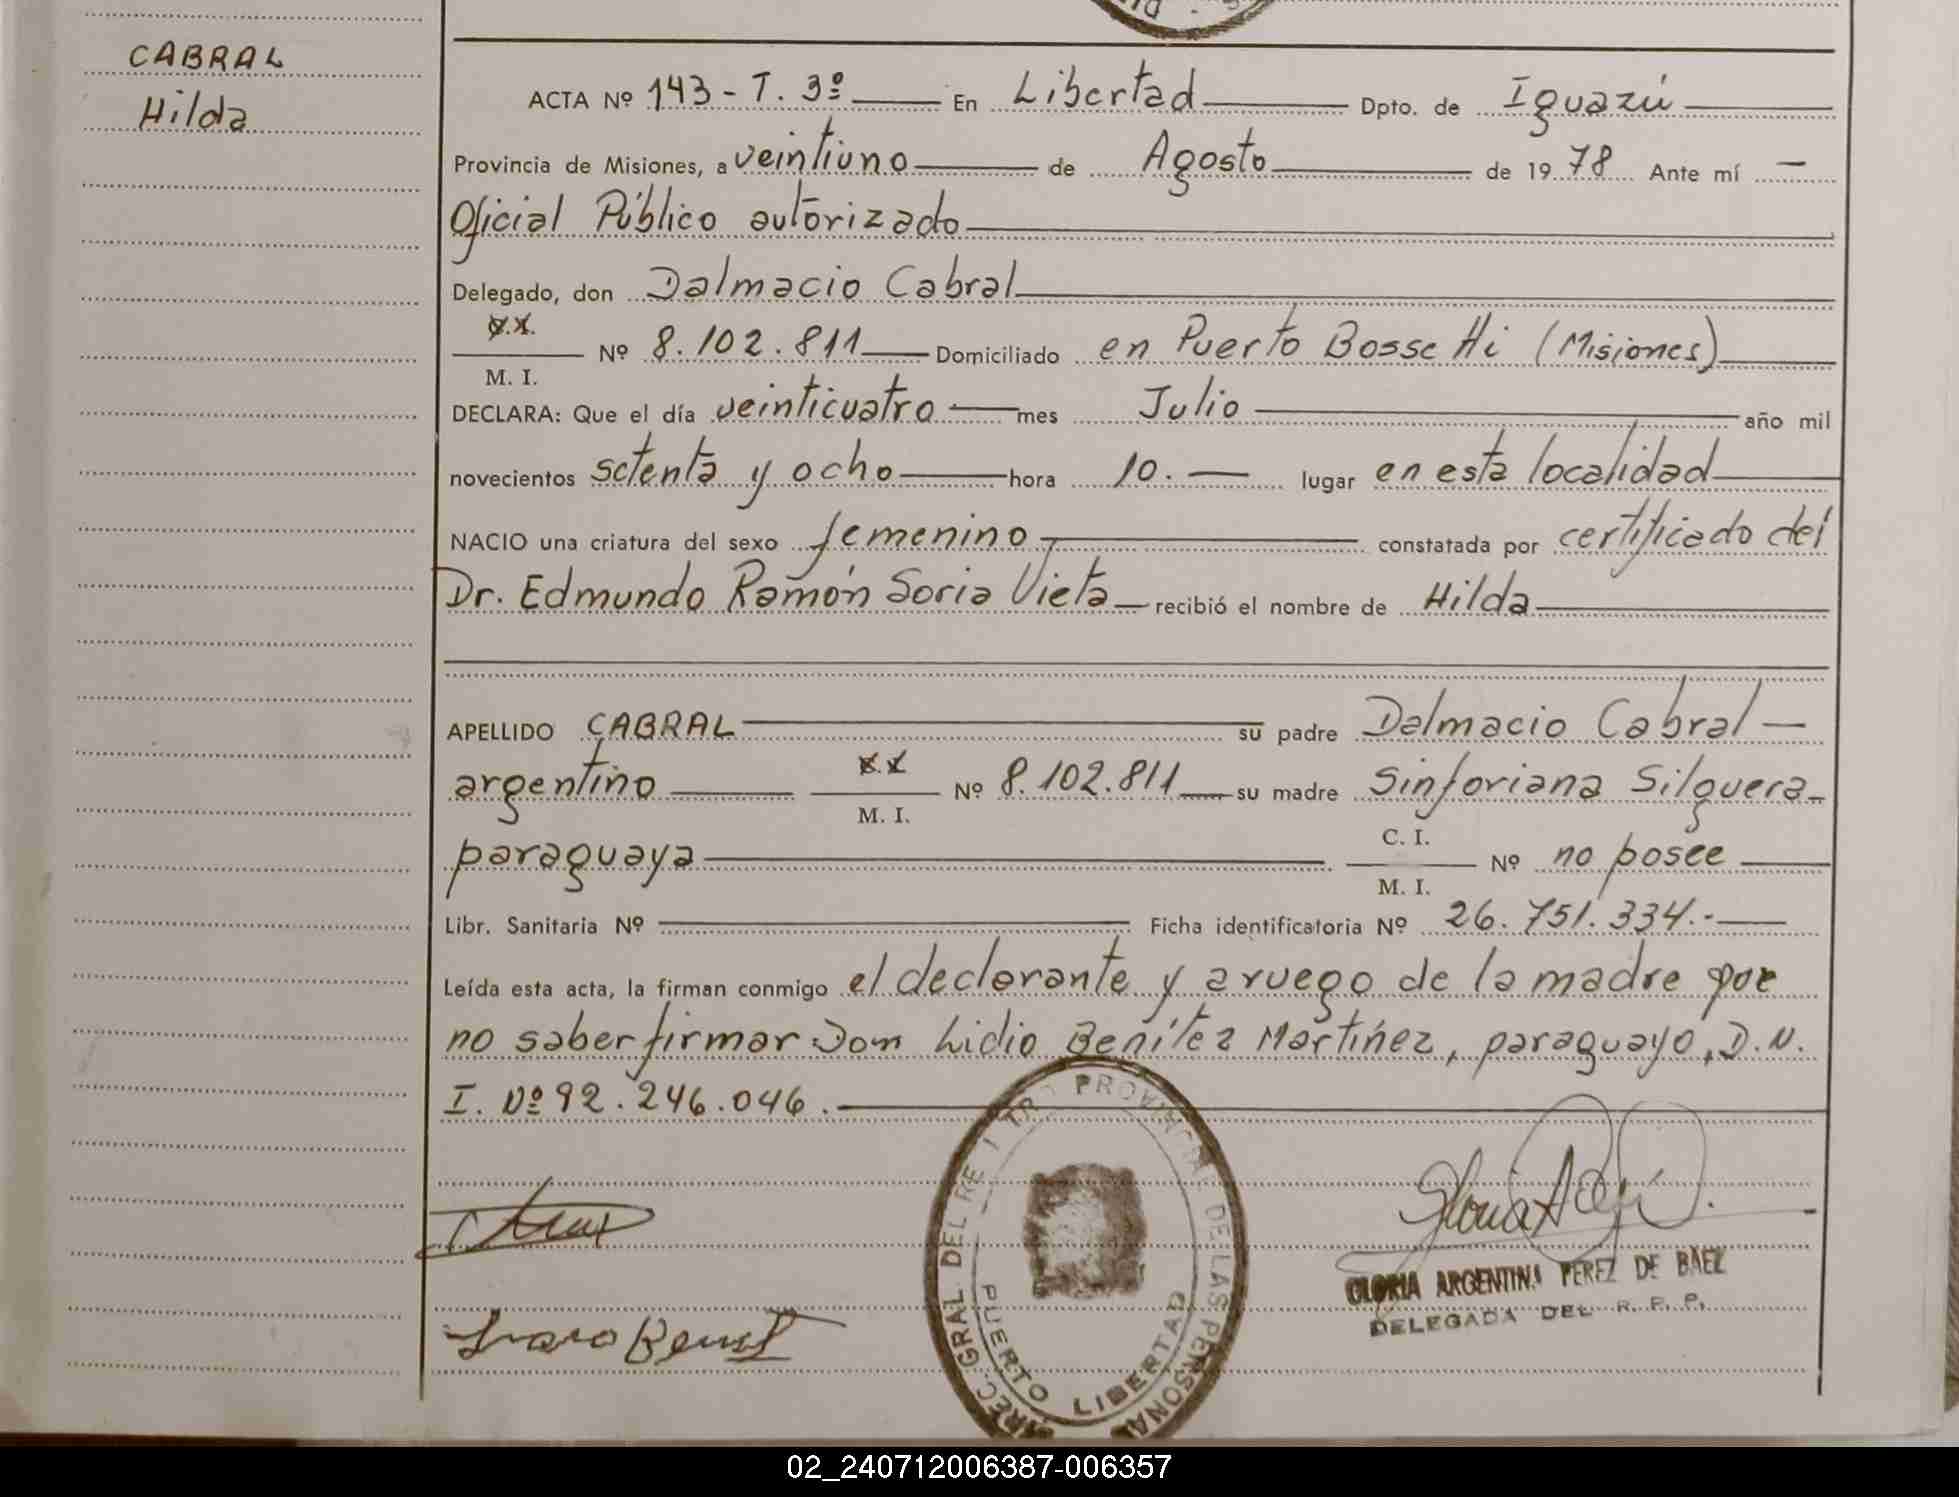 CABRAL
Hilda
ACTA Nº 143 - T. 3º En Libertad Dpto. de Iguazú
Provincia de Misiones, a veintiuno de Agosto de 1978 Ante mí
Oficial Público autorizado
Delegado, don Dalmacio Cabral
M. I. Nº 8.102.811 Domiciliado en Puerto Bossetti (Misiones)
DECLARA: Que el día veinticuatro mes Julio año mil
novecientos setenta y ocho hora 10. lugar en esta localidad
NACIO una criatura del sexo femenino constatada por certificado del
Dr. Edmundo Ramón Soria Vieta recibió el nombre de Hilda
APELLIDO CABRAL su padre Dalmacio Cabral
argentino M. I. Nº 8.102.811 su madre Sinforiana Silguera
paraguaya C. I. M. I. Nº no posee
Libr. Sanitaria Nº Ficha identificatoria Nº 26.751.334.-
Leída esta acta, la firman conmigo el declarante y a ruego de la madre por
no saber firmar Don Lidio Benítez Martínez, paraguayo, D.N.
I. Nº 92.246.046.
PROVINCIAL DE LAS PERSONAS
GRAL. DEL
PUERTO LIBERTAD
GLORIA ARGENTINA PEREZ DE BAEZ
DELEGADA DEL R. P. P.
02_240712006387-006357